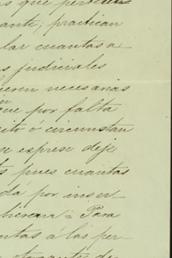 as que pertene
ante; practican
lar cuantas a
s judiciales
ieren necesarias
que por falta
ito o circunstan
n exprese deje
pues cuantas
da por inser
Para
ntas á las per